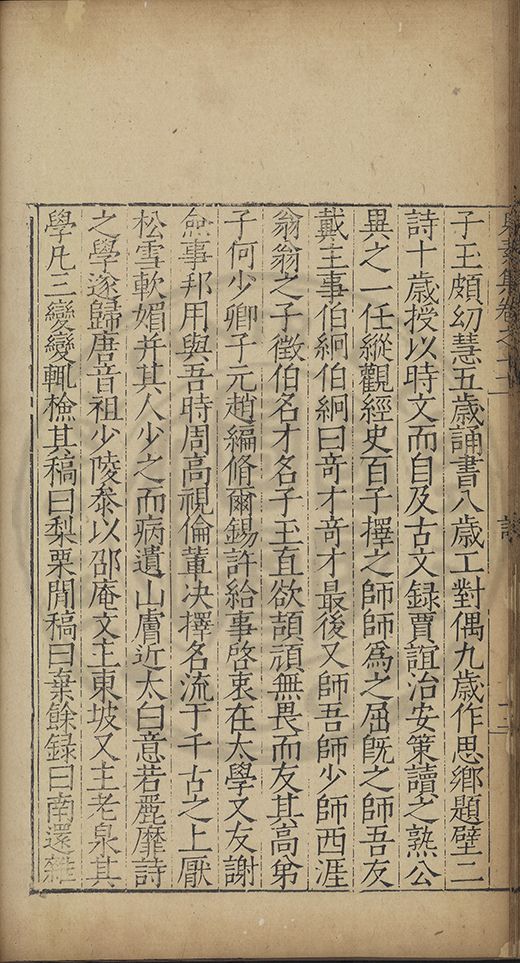 子玉頗㓜慧五歲誦書八歲工對偶九歲作思鄉題壁二
詩十歲授以時文而自及古文録賈誼治安策讀之熟公
異之一任縱觀經史百子擇之師師為之屈旣之師吾友
戴主事伯絅伯絅曰奇才奇才最後又師吾師少師西涯
翁翁之子徵伯名才名子玉直欲頡頏無畏而友其高弟
子何少卿子元趙編脩爾錫許給事啓衷在太學又友謝
僉事邦用與吾時周高視倫輩决擇名流于千古之上厭
松雪軟媚并其人少之而病遺山膚近太白意若麗靡詩
之學遂歸唐音祖少陵叅以邵庵文主東坡又主老泉其
學凡三變變輒檢其稿曰梨栗閒稿曰棄餘録曰南還雜